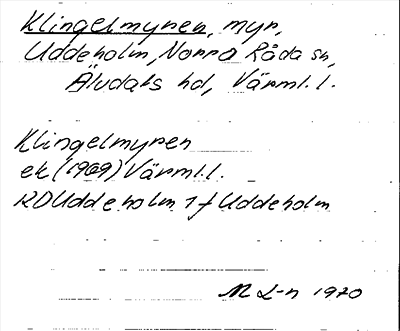 Klingelmyren, myr,
Uddeholm, Norra Råda sn,
Älvdals hd, Värml. l.
Klingelmyren
ek (1969) Värml.l.
RDUddeholm 1 f Uddeholm
M L-n 1970